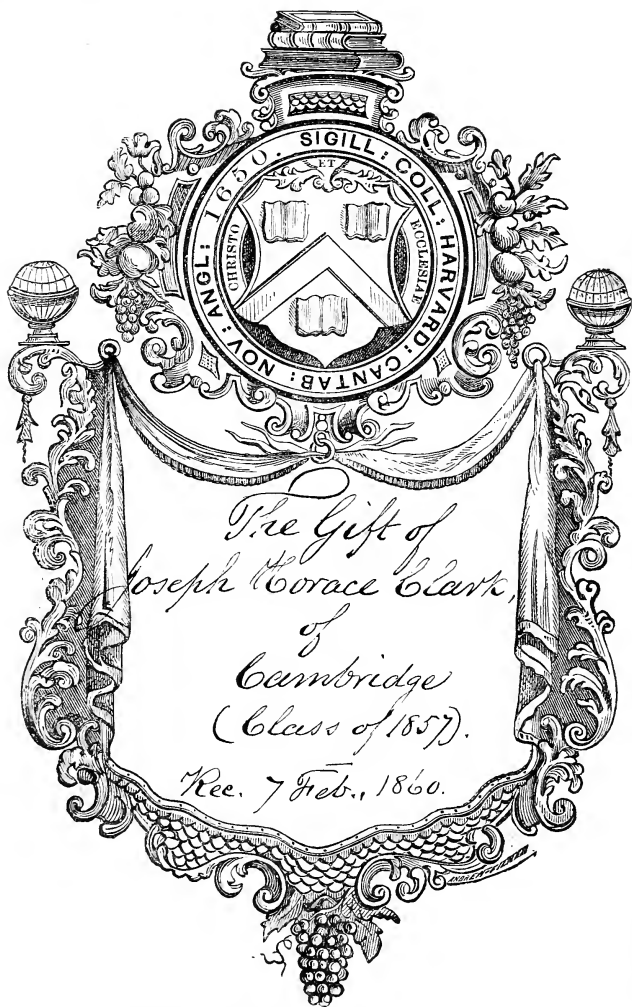 SIGILL: COLL: HARVARD: CANTAB: NOV: ANGL: 1650.
ET
CHRISTO
ECCLESIAE
The Gift of
Joseph Horace Clark,
of
Cambridge
(Class of 1857).
Rec. 7 Feb., 1860.